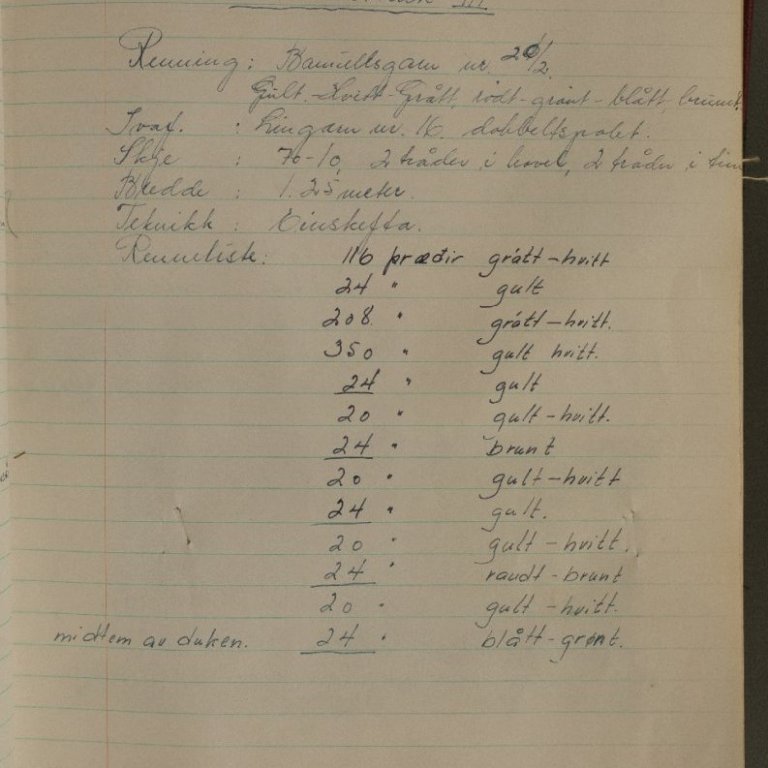 III
Renning: Bomullsgarn nr. 20/2.
Gult-Hvitt-Grått, rödt-grönt-blått, brunt.
Ivaf. : Lingarn nr. 16. dobbeltspolet.
Skje : 70-10, 2 tråder i hovel, 2 tråder i tin
Bredde : 1.25 meter.
Teknikk : Einskefta.
Renneliste: 116 þræðir grátt-hvitt
24 " gult
208. " grátt-hvitt.
350 " gult hvitt.
24 " gult
20 " gult-hvitt.
24 " brunt
20 " gult-hvitt
24 " gult.
20 " gult-hvitt.
24 " raudt-brunt
20 " gult-hvitt.
midtem av duken. 24 " blått-grønt.